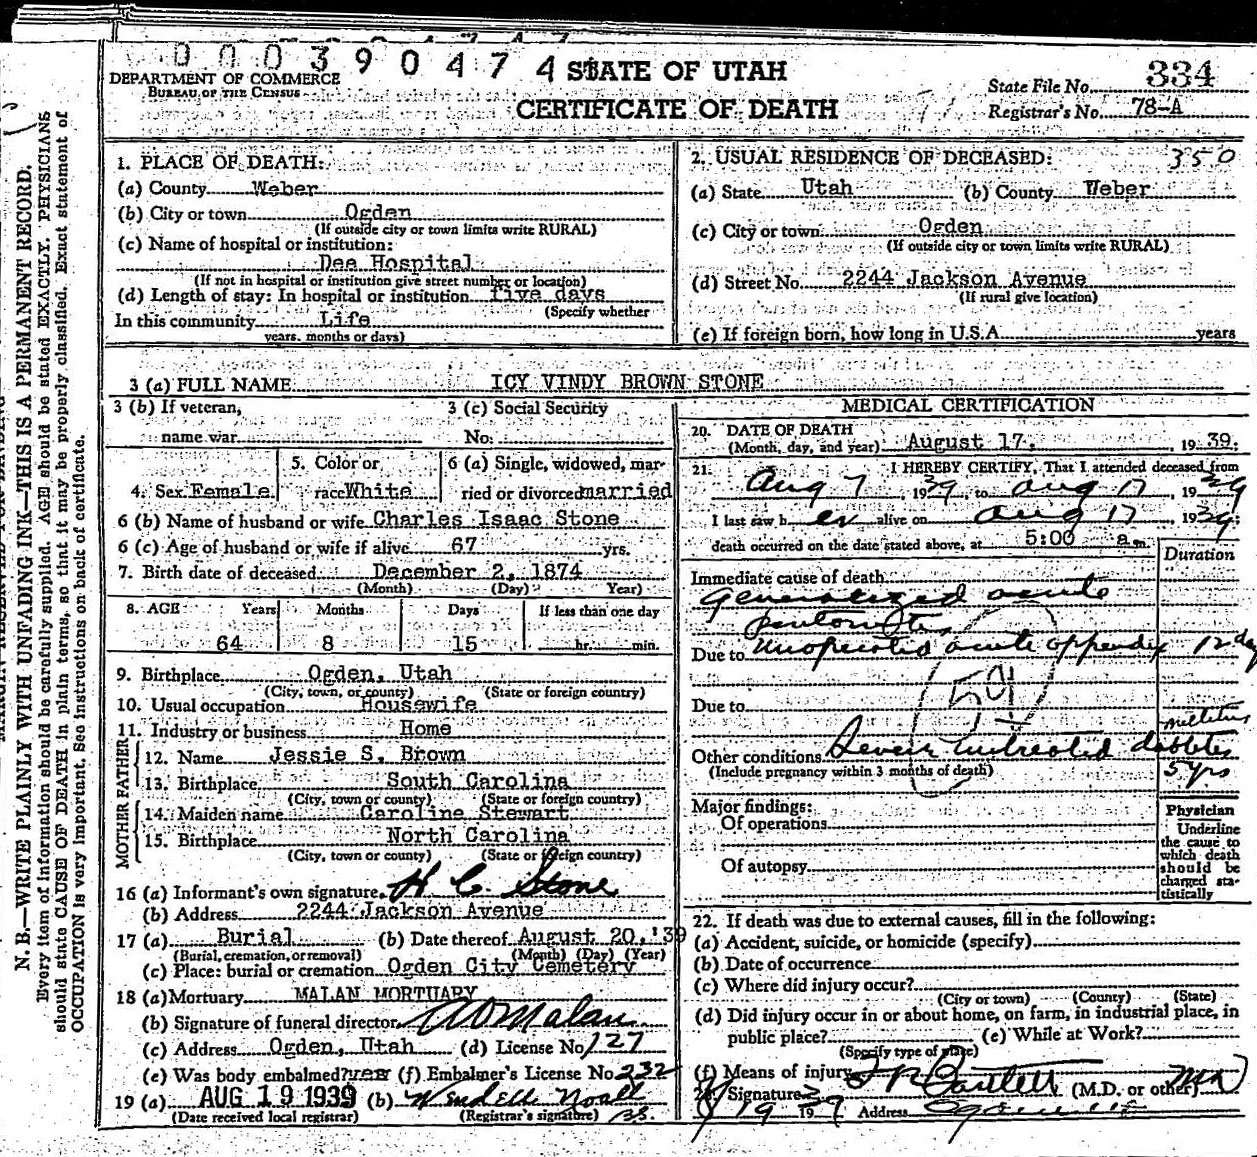 000390474 STATE OF UTAH
DEPARTMENT OF COMMERCE
BUREAU OF THE CENSUS
CERTIFICATE OF DEATH
State File No. 334
Registrar's No. 78-A
N. B.—WRITE PLAINLY WITH UNFADING INK—THIS IS A PERMANENT RECORD.
Every item of information should be carefully supplied. AGE should be stated EXACTLY. PHYSICIANS
should state CAUSE OF DEATH in plain terms, so that it may be properly classified. Exact statement of
OCCUPATION is very important. See instructions on back of certificate.
1. PLACE OF DEATH:
(a) County Weber
(b) City or town Ogden
(If outside city or town limits write RURAL)
(c) Name of hospital or institution:
Dee Hospital
(If not in hospital or institution give street number or location)
(d) Length of stay: In hospital or institution five days
(Specify whether
In this community Life
years, months or days)
2. USUAL RESIDENCE OF DECEASED: 350
(a) State Utah (b) County Weber
(c) City or town Ogden
(If outside city or town limits write RURAL)
(d) Street No. 2244 Jackson Avenue
(If rural give location)
(e) If foreign born, how long in U.S.A. years
3 (a) FULL NAME ICY VINDY BROWN STONE
3 (b) If veteran,
name war
3 (c) Social Security
No.
4. Sex Female
5. Color or
race White
6 (a) Single, widowed, mar-
ried or divorced married
6 (b) Name of husband or wife Charles Isaac Stone
6 (c) Age of husband or wife if alive 67 yrs.
7. Birth date of deceased December 2, 1874
(Month) (Day) Year)
8. AGE Years Months Days If less than one day
64 8 15 hr. min.
9. Birthplace Ogden, Utah
(City, town, or county) (State or foreign country)
10. Usual occupation Housewife
11. Industry or business Home
FATHER
12. Name Jessie S. Brown
13. Birthplace South Carolina
(City, town or county) (State or foreign country)
MOTHER
14. Maiden name Caroline Stewart
15. Birthplace North Carolina
(City, town or county) (State or foreign country)
16 (a) Informant's own signature H C Stone
(b) Address 2244 Jackson Avenue
17 (a) Burial (b) Date thereof August 20, '39
(Burial, cremation, or removal) (Month) (Day) (Year)
(c) Place: burial or cremation Ogden City Cemetery
18 (a) Mortuary MALAN MORTUARY
(b) Signature of funeral director Malan
(c) Address Ogden, Utah (d) License No. 127
(e) Was body embalmed? yes (f) Embalmer's License No. 232
19 (a) AUG 19 1939 (b) Wendell Noall
(Date received local registrar) (Registrar's signature)
MEDICAL CERTIFICATION
20. DATE OF DEATH
(Month, day, and year) August 17, 1939.
21. I HEREBY CERTIFY, That I attended deceased from
Aug 7, 1939 to Aug 17, 1939
I last saw her alive on Aug 17, 1939;
death occurred on the date stated above, at 5:00 a m.
Duration
Immediate cause of death
Generalized acute
peritonitis
Due to Unoperated acute appendix 12 dy
59
Due to
Other conditions Severe untreated diabetes mellitus
(Include pregnancy within 3 months of death) 5 yrs
Major findings:
Of operations
Of autopsy
Physician
Underline
the cause to
which death
should be
charged sta-
tistically
22. If death was due to external causes, fill in the following:
(a) Accident, suicide, or homicide (specify)
(b) Date of occurrence
(c) Where did injury occur?
(City or town) (County) (State)
(d) Did injury occur in or about home, on farm, in industrial place, in
public place? (e) While at Work?
(Specify type of place)
(f) Means of injury
Signature Bartlett (M.D. or other) MD
8/19 1939 Address Ogden